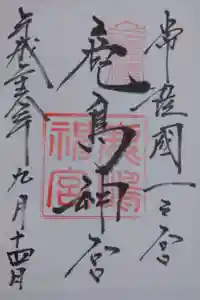 常陸國一之宮
鹿島神宮
平成二十六年九月十四日
鹿嶋神宮